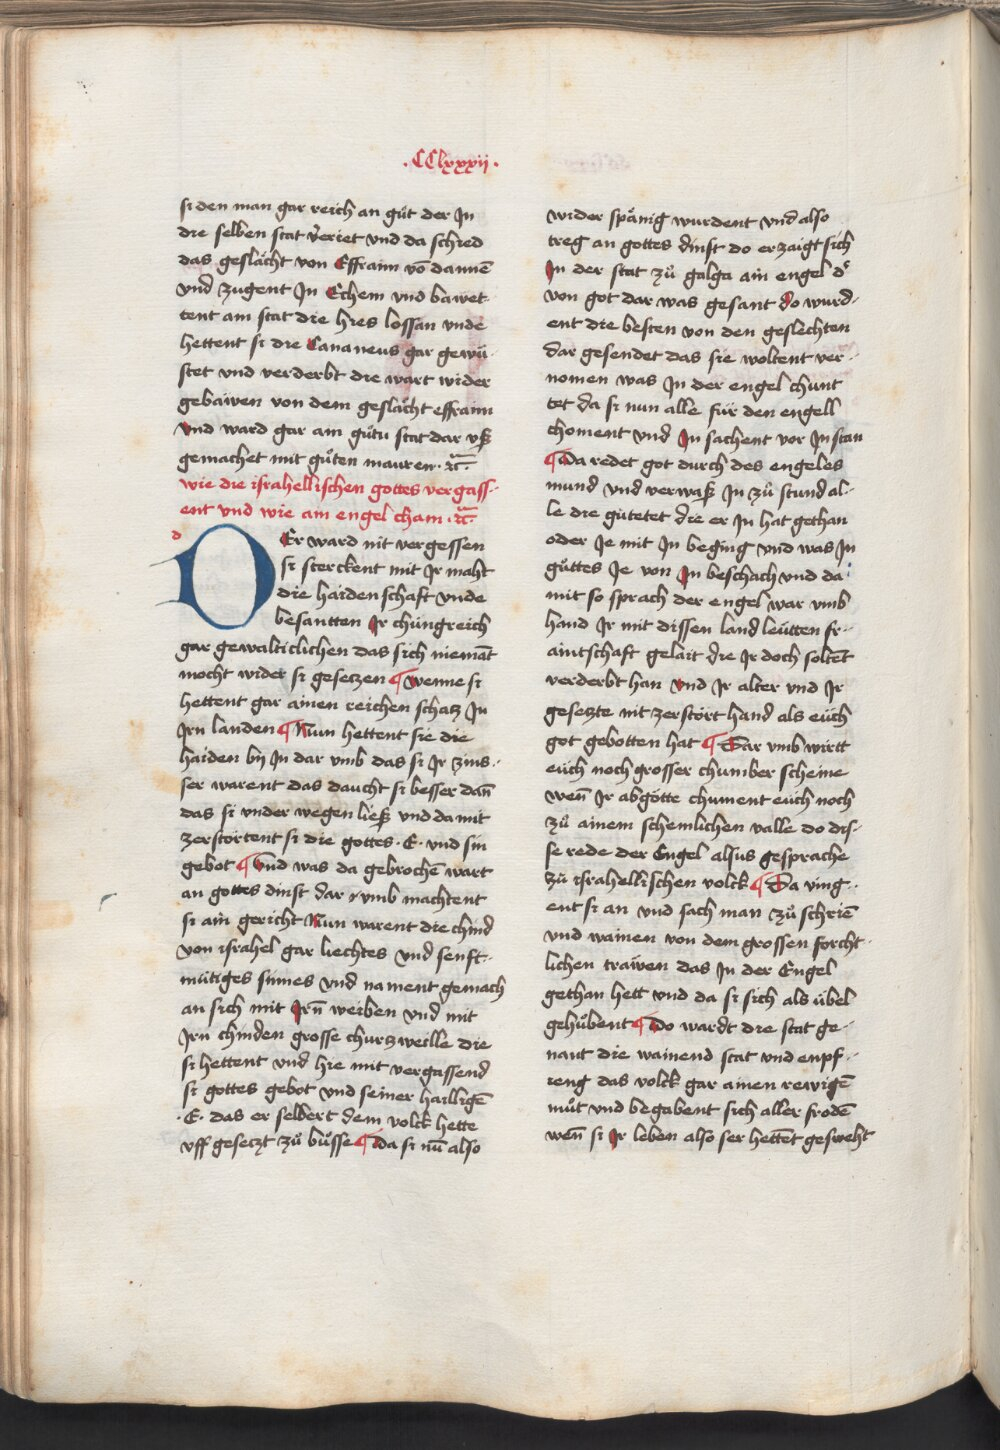 ·CClxxxij·
si den man gar reich an gůt der Jn
die selben stat v̾eriet vnd da schied
das geslächt von Effraim võ dannē
vnd zugent Jn Echem vnd bawet-
tent am stat die hies lossan vnde
hettent si die Cananeus gar gewü-
stet vnd verderbt die wart wider
gebäwen von dem geslächt effraim
vnd ward gar am gůtu stat dar vß
gemachet mit gůten mauren·ꝛc̃·
wie die israhellischen gottes vergass-
ent vnd wie am engel cham·ꝛc̃·
d
DEr ward nit vergessen
si sterckent mit Jr maht
die haidenschaft vnde
besantten Jr chüngreich
gar gewalticlichen das sich niemāt
mocht wider si gesetzen ¶ wenne si
hettent gar ainen reichen schatz Jn
Jrn landen ¶ Nun hettent sie die
haiden bÿ Jn dar vmb das si Jr zins-
ser warent das daucht si besser dañ
das si vnder wegen ließ vnd da mit
zerstortent si die gottes·E·vnd sin
gebot ¶ vnd was da gebrochē wart
an gottes dinst dar vmb machtent
si ain gericht Nun warent die chind
von israhel gar liechtes vnd senft-
mütiges sinnes vnd nament gemach
an sich mit Jrñ weiben vnd mit
Jrn chinden grosse churtzweille die
si hettent vnd hie mit vergassend
si gottes gebot vnd seiner hailligē
·E· das er selbert dem volck hette
vff gesetzt zů büsse ¶ da si nū also
wider spänig wurdent vnd also
treg an gottes dinst do erzaigt sich
Jn der stat zů galga ain engel d̾
von got dar was gesant do wurd-
ent die besten von den geslechten
dar gesendet das sie woltent ver-
nomen was Jn der engel chunt
tet da si nun alle für den engell
choment vnd Jn sachent vor Jn stan
¶ da redet got durch des engeles
mund vnd verwaß Jn zů stund al-
le die gütetet die er Jn hat gethan
oder Je mit Jn begi̇ng vnd was Jn
gůttes Je von Jn beschach vnd da
mit so sprach der engel war vmb
hand Jr mit dissen landleütten fr-
aintschaft gelait die Jr doch soltēt
verderbt han vnd Jr alter vnd Jr
gesetzte nit zerstört hand als eüch
got gebotten hat ¶ Dar vmb wirtt
eüch noch grosser chumber scheine
weñ Jr abgötte chument eüch noch
zů ainem schemlichen valle do dis-
se rede der Engel alsus gesprache
zü israhellischen volck ¶ Da ving-
ent si an vnd sach man zů schriē
vnd wainen von dem grossen forcht-
lichen träwen das Jn der Engel
gethan hett vnd da si sich als übel
gehübent ¶ Do wardt die stat ge-
nant die wainend stat vnd enpf-
ieng das volck gar ainen rewigē
můt vnd begabent sich aller frödē
weñ si Jr leben also ser hettēt gesweht